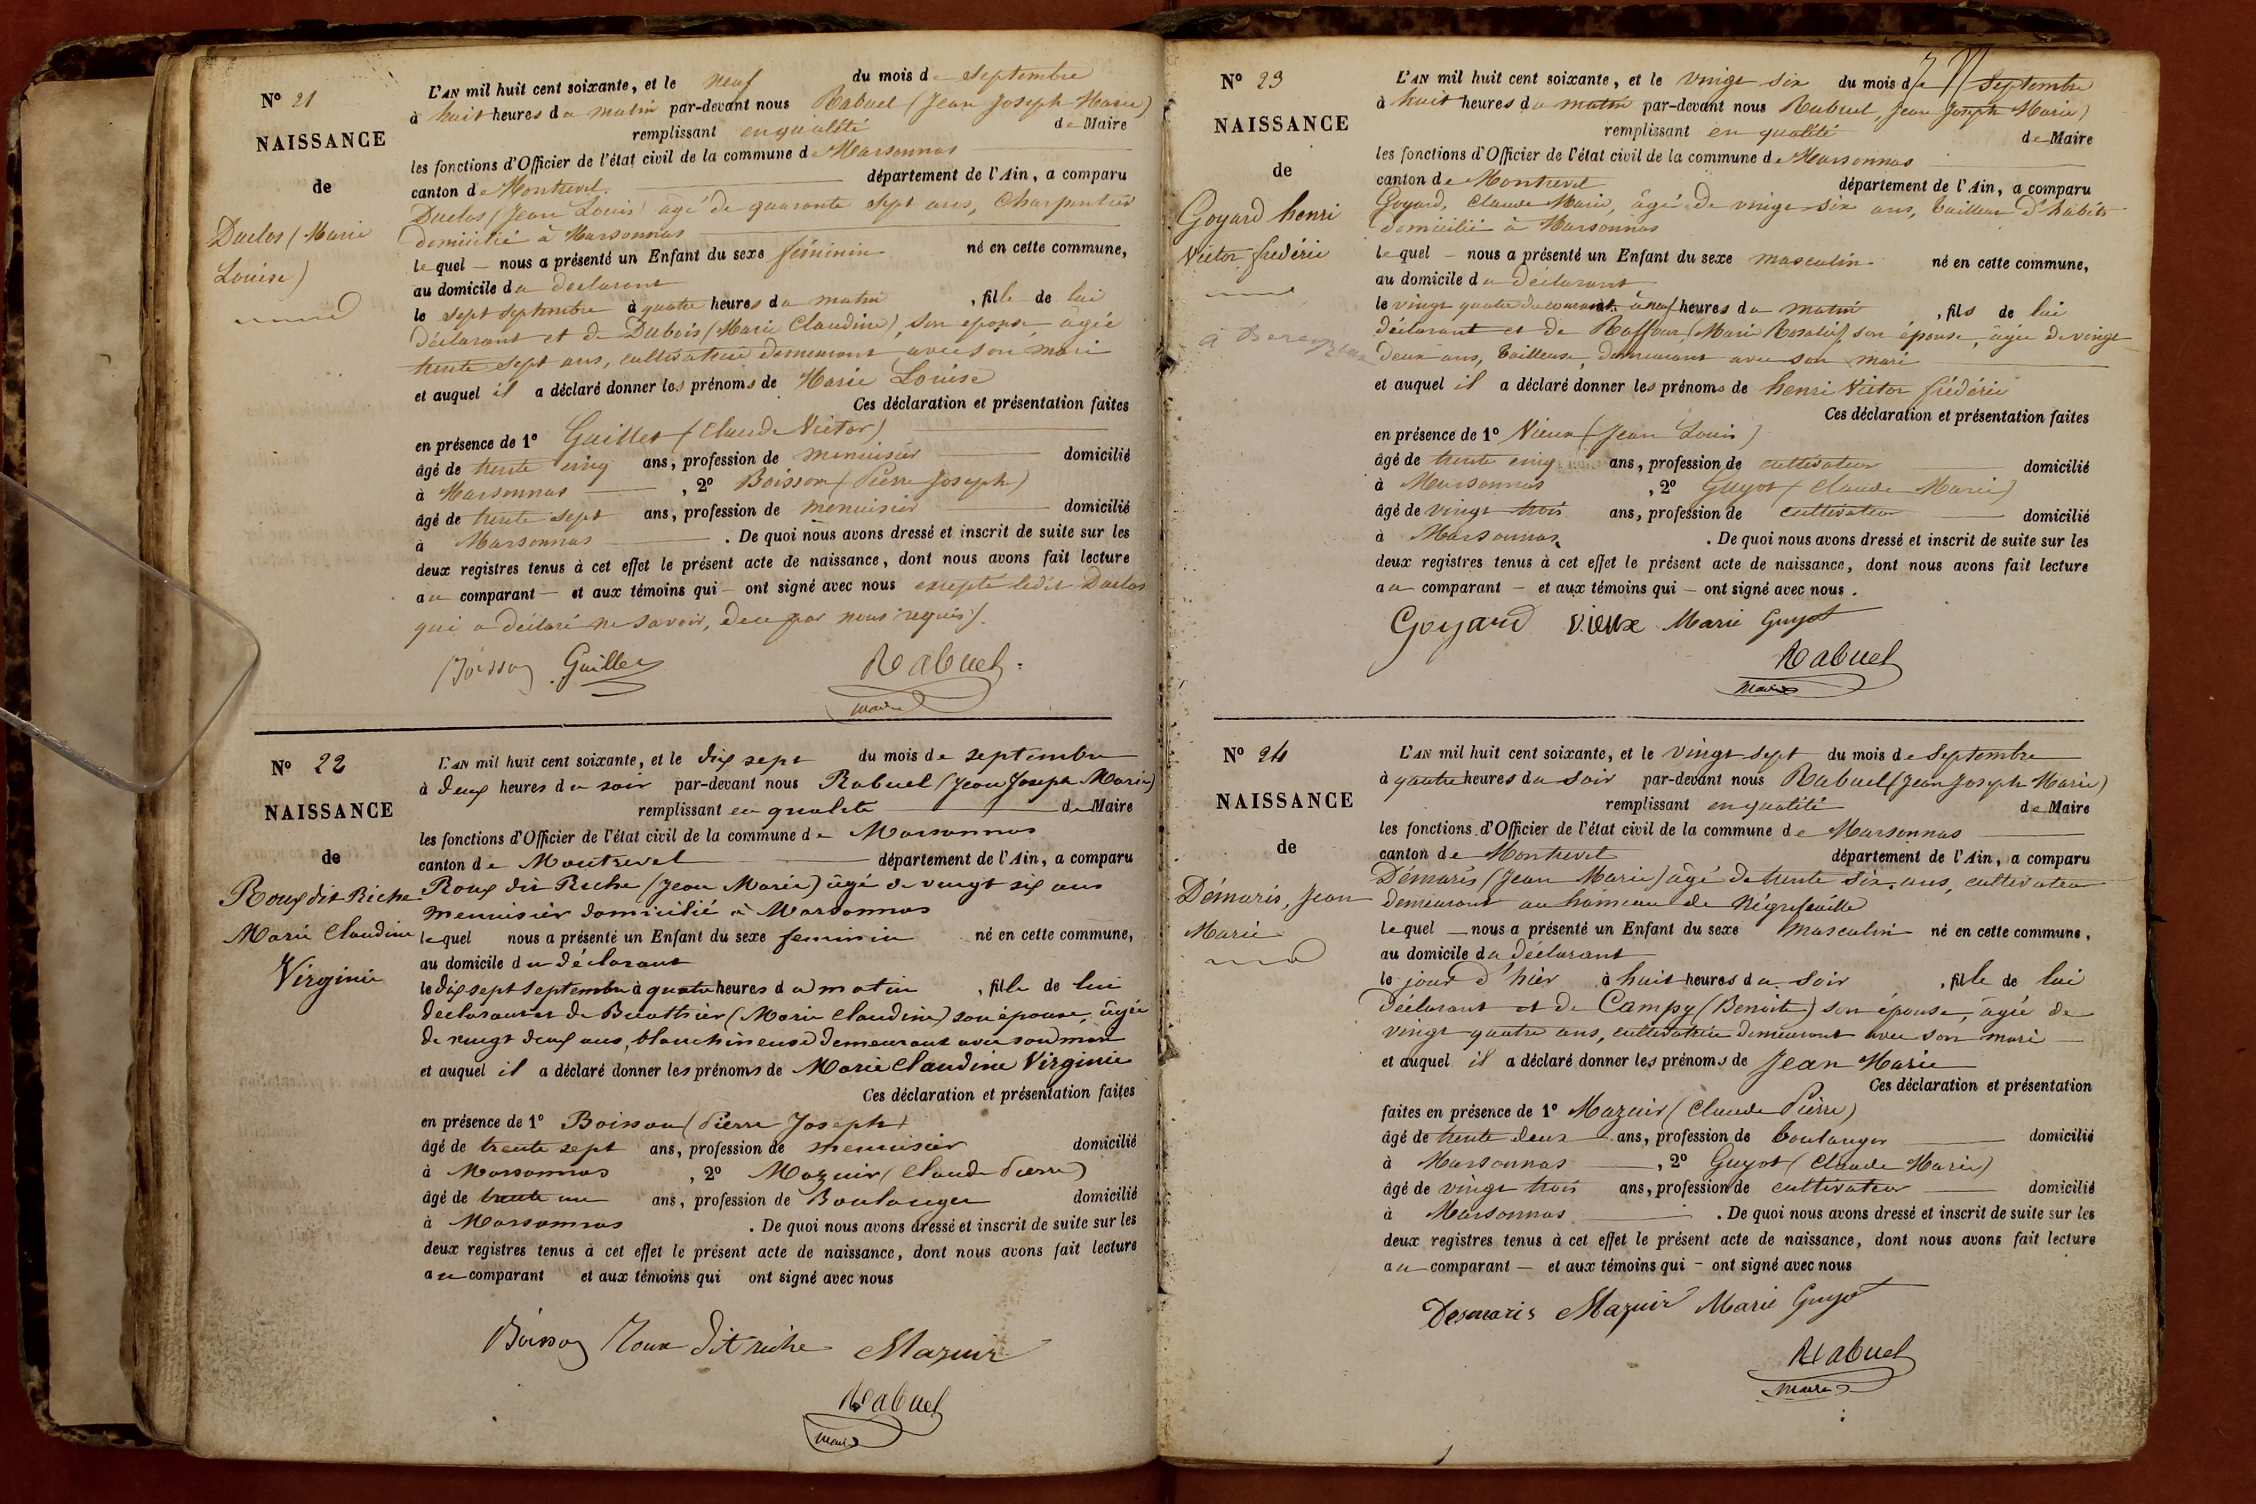 N° 21
NAISSANCE
de
Duclos (Marie
Louise)
L'AN mil huit cent soixante, et le neuf du mois de septembre
à huit heures du matin par-devant nous Rabuel (Jean Joseph Marie)
remplissant en qualité de Maire
les fonctions d'Officier de l'état civil de la commune de Marsonnas
canton de Montrevel département de l'Ain, a comparu
Duclos (Jean Louis) âgé de quarante sept ans, Charpentier
domicilié à Marsonnas
lequel nous a présenté un Enfant du sexe féminin né en cette commune,
au domicile du déclarant
le sept septembre à quatre heures du matin, fille de lui
déclarant et de Dubois (Marie Claudine), son épouse âgée
trente sept ans, cultivatrice demeurant avec son mari
et auquel il a déclaré donner les prénoms de Marie Louise
Ces déclaration et présentation faites
en présence de 1° Guillet (Claude Victor)
âgé de trente cinq ans, profession de menuisier domicilié
à Marsonnas, 2° Boisson (Pierre Joseph)
âgé de trente sept ans, profession de menuisier domicilié
à Marsonnas. De quoi nous avons dressé et inscrit de suite sur les
deux registres tenus à cet effet le présent acte de naissance, dont nous avons fait lecture
au comparant et aux témoins qui ont signé avec nous excepté ledit Duclos
qui a déclaré ne savoir, de ce par nous requis).
Boisson Guillet Rabuel
maire
N° 22
NAISSANCE
de
Roux dit Riche
Marie Claudine
Virginie
L'AN mil huit cent soixante, et le dix sept du mois de septembre
à deux heures du soir par-devant nous Rabuel (Jean Joseph Marie)
remplissant en qualité de Maire
les fonctions d'Officier de l'état civil de la commune de Marsonnas
canton de Montrevel département de l'Ain, a comparu
Roux dit Riche (Jean Marie) âgé de vingt six ans
menuisier domicilié à Marsonnas
lequel nous a présenté un Enfant du sexe feminin né en cette commune,
au domicile du déclarant
le dix sept septembre à quatre heures du matin, fille de lui
declarant et de Buathier (Marie Claudine) son épouse, âgée
de vingt deux ans, blanchineuse demeurant avec son mari
et auquel il a déclaré donner les prénoms de Marie Claudine Virginie
Ces déclaration et présentation faites
en présence de 1° Boisson (Pierre Joseph)
âgé de trente sept ans, profession de menuisier domicilié
à Marsonnas, 2° Mazuir (Claude Pierre)
âgé de trente un ans, profession de Boulanger domicilié
à Marsonnas. De quoi nous avons dressé et inscrit de suite sur les
deux registres tenus à cet effet le présent acte de naissance, dont nous avons fait lecture
au comparant et aux témoins qui ont signé avec nous
Boisson Roux dit riche Mazuir
Rabuel
maire
N° 23
NAISSANCE
de
Goyard henri
Victor frédéric
L'AN mil huit cent soixante, et le vingt six du mois de Septembre
à huit heures du matin par-devant nous Rabuel, Jean Joseph Marie)
remplissant en qualité de Maire
les fonctions d'Officier de l'état civil de la commune de Marsonnas
canton de Montrevel département de l'Ain, a comparu
Goyard, Claude Marie, âgé de vingt-six ans, tailleur d'habits
domicilié à Marsonnas
lequel nous a présenté un Enfant du sexe masculin né en cette commune,
au domicile du déclarant
le vingt quatre du courant à neuf heures du matin, fils de lui
déclarant et de Roffour (Marie Rosalie) son épouse, âgée de vingt
deux ans, tailleuse, demeurant avec son mari
et auquel il a déclaré donner les prénoms de henri Victor frédéric
Ces déclaration et présentation faites
en présence de 1° Vieux (Jean Louis)
âgé de trente cinq ans, profession de cultivateur domicilié
à Marsonnas, 2° Guyot (Claude Marie)
âgé de vingt trois ans, profession de cultivateur domicilié
à Marsonnas. De quoi nous avons dressé et inscrit de suite sur les
deux registres tenus à cet effet le présent acte de naissance, dont nous avons fait lecture
au comparant et aux témoins qui ont signé avec nous.
Goyard vieux Marie Guyot
Rabuel
maire
N° 24
NAISSANCE
de
Démaris, Jean
Marie
L'AN mil huit cent soixante, et le vingt sept du mois de Septembre
à quatre heures du soir par-devant nous Rabuel (Jean Joseph Marie)
remplissant en qualité de Maire
les fonctions d'Officier de l'état civil de la commune de Marsonnas
canton de Montrevel département de l'Ain, a comparu
Démaris (Jean Marie) âgé de trente six ans, cultivateur
demeurant au hameau de Négrefeuille
lequel nous a présenté un Enfant du sexe masculin né en cette commune,
au domicile du déclarant
le jour d'hier à huit heures du soir, fille de lui
déclarant et de Campy (Benoite) son épouse, âgée de
vingt quatre ans, cultivatrice demeurant avec son mari
et auquel il a déclaré donner les prénoms de Jean Marie
Ces déclaration et présentation
faites en présence de 1° Mazuir (Claude Pierre)
âgé de trente deux ans, profession de boulanger domicilié
à Marsonnas, 2° Guyot (Claude Marie)
âgé de vingt trois ans, profession de cultivateur domicilié
à Marsonnas. De quoi nous avons dressé et inscrit de suite sur les
deux registres tenus à cet effet le présent acte de naissance, dont nous avons fait lecture
au comparant et aux témoins qui ont signé avec nous
Desmaris Mazuir Marie Guyot
Rabuel
maire